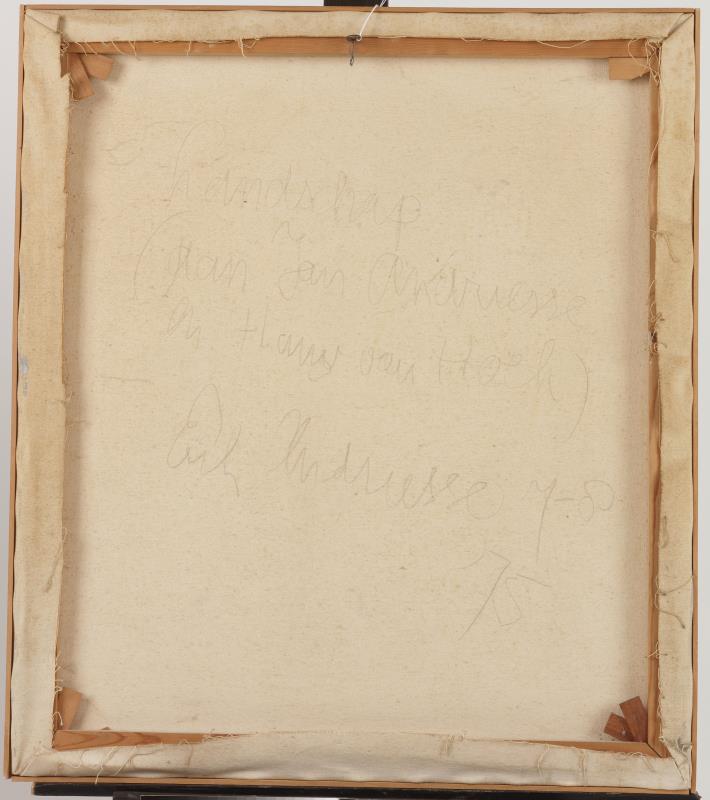 Landschap
(aan Jan Andriesse
en Hans van Hoek)
Erik Andriesse 7-80
75